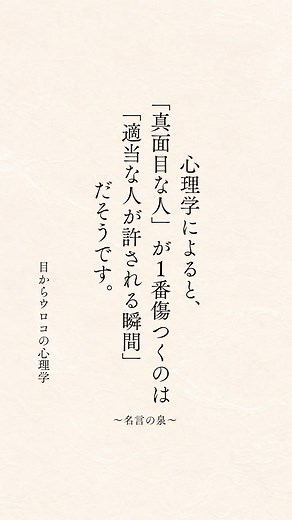 心理学によると、
「真面目な人」が1番傷つくのは
「適当な人が許される瞬間」
だそうです。
目からウロコの心理学
～名言の泉～